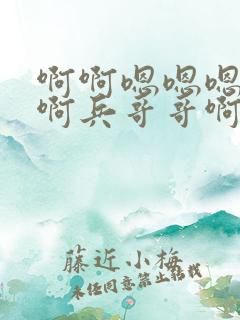 啊啊嗯嗯嗯
啊兵哥哥啊
藤近小梅
未经同意禁止转载